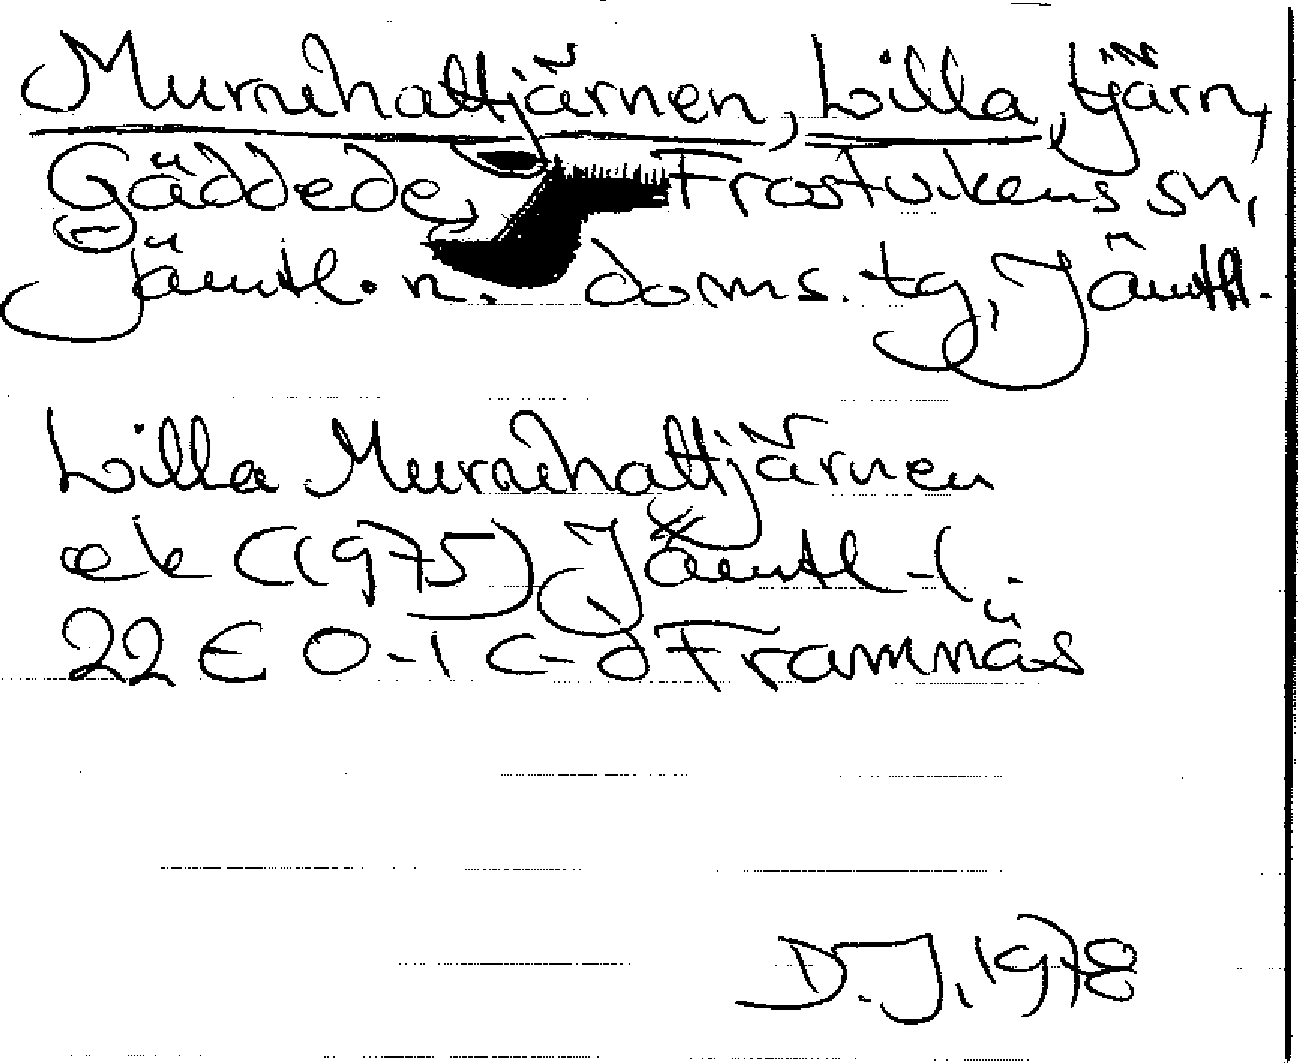 Murruhattjärnen, Lilla, tjärn,
Gäddede, Frostvikens sn,
Jämtl. n. doms. tg, Jämtl.
Lilla Murruhattjärnen
ek (1975) Jämtl-l.
22 E 0-1 c-d Framnäs
D.J. 1978